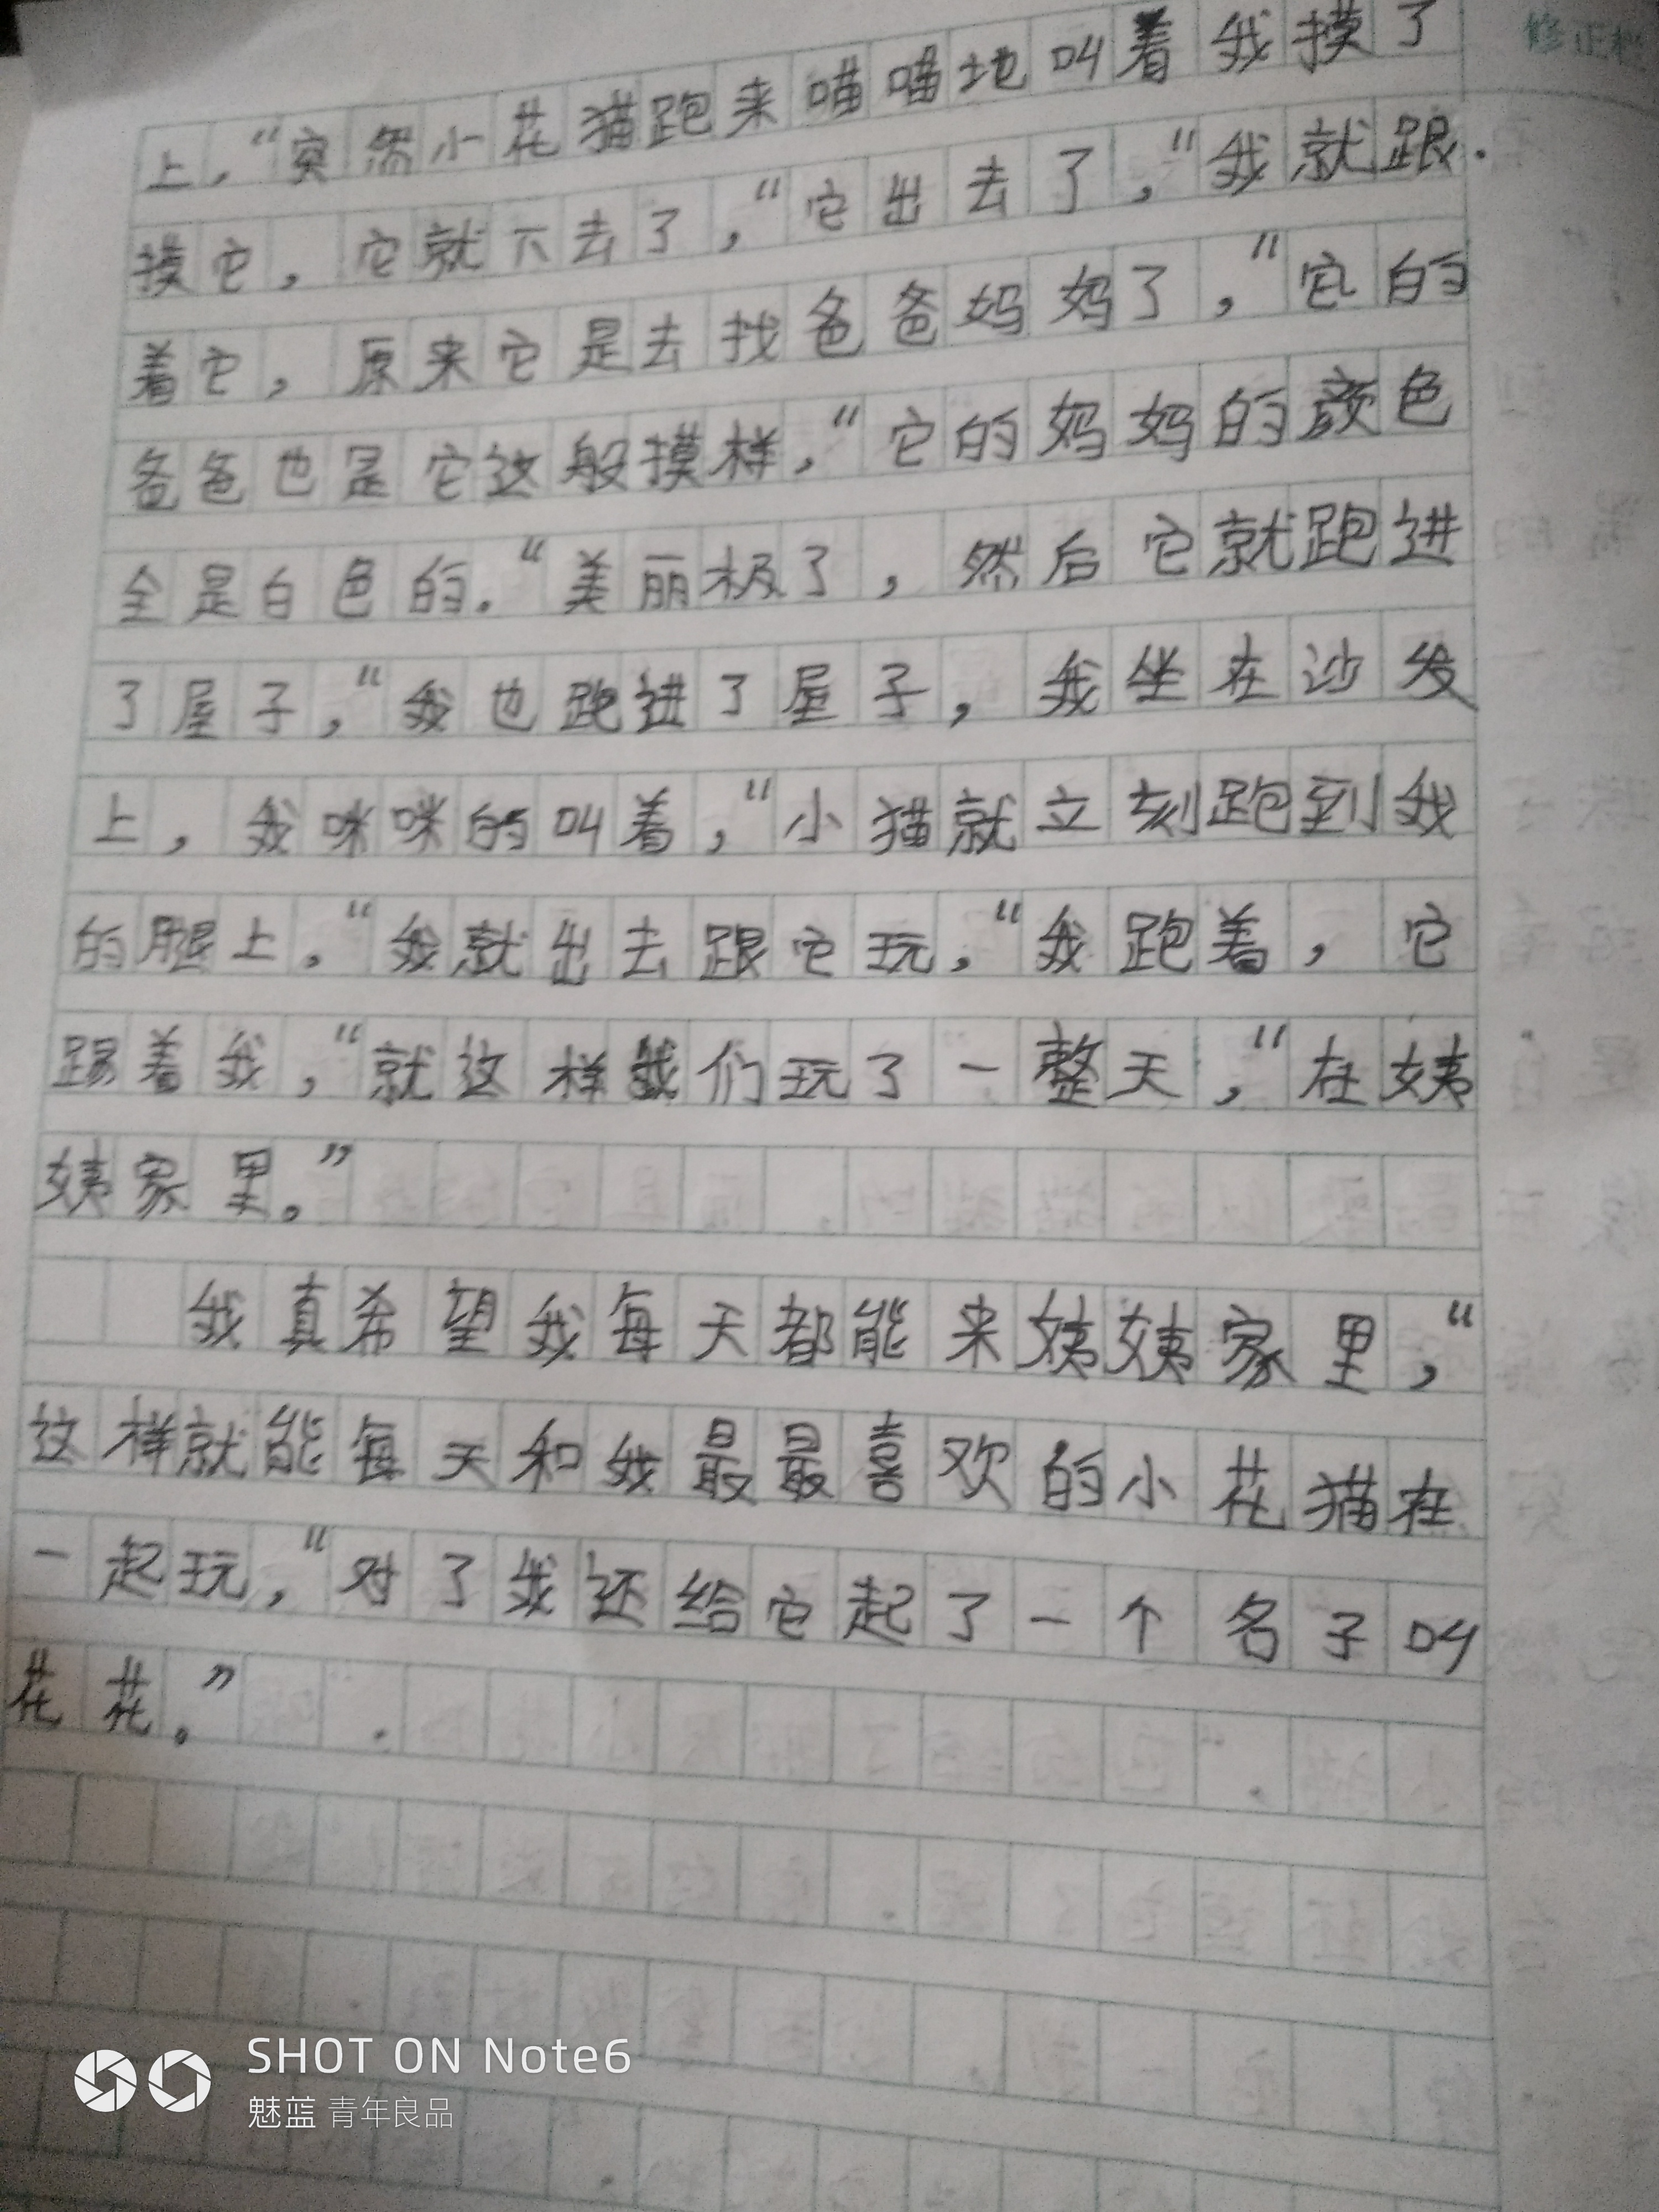 修正栏
上，“突然小花猫跑来喵喵地叫着我摸了
摸它，它就下去了，“它出去了，“我就跟
着它，原来它是去找爸爸妈妈了，“它的
爸爸也是它这般摸样，“它的妈妈的颜色
全是白色的。“美丽极了，然后它就跑进
了屋子，“我也跑进了屋子，我坐在沙发
上，我咪咪的叫着，“小猫就立刻跑到我
的腿上，“我就出去跟它玩，“我跑着，它
踢着我，“就这样我们玩了一整天，“在姨
姨家里。”
我真希望我每天都能来姨姨家里，“
这样就能每天和我最最喜欢的小花猫在
一起玩，“对了我还给它起了一个名子叫
花花。”
SHOT ON Note6
魅蓝 青年良品